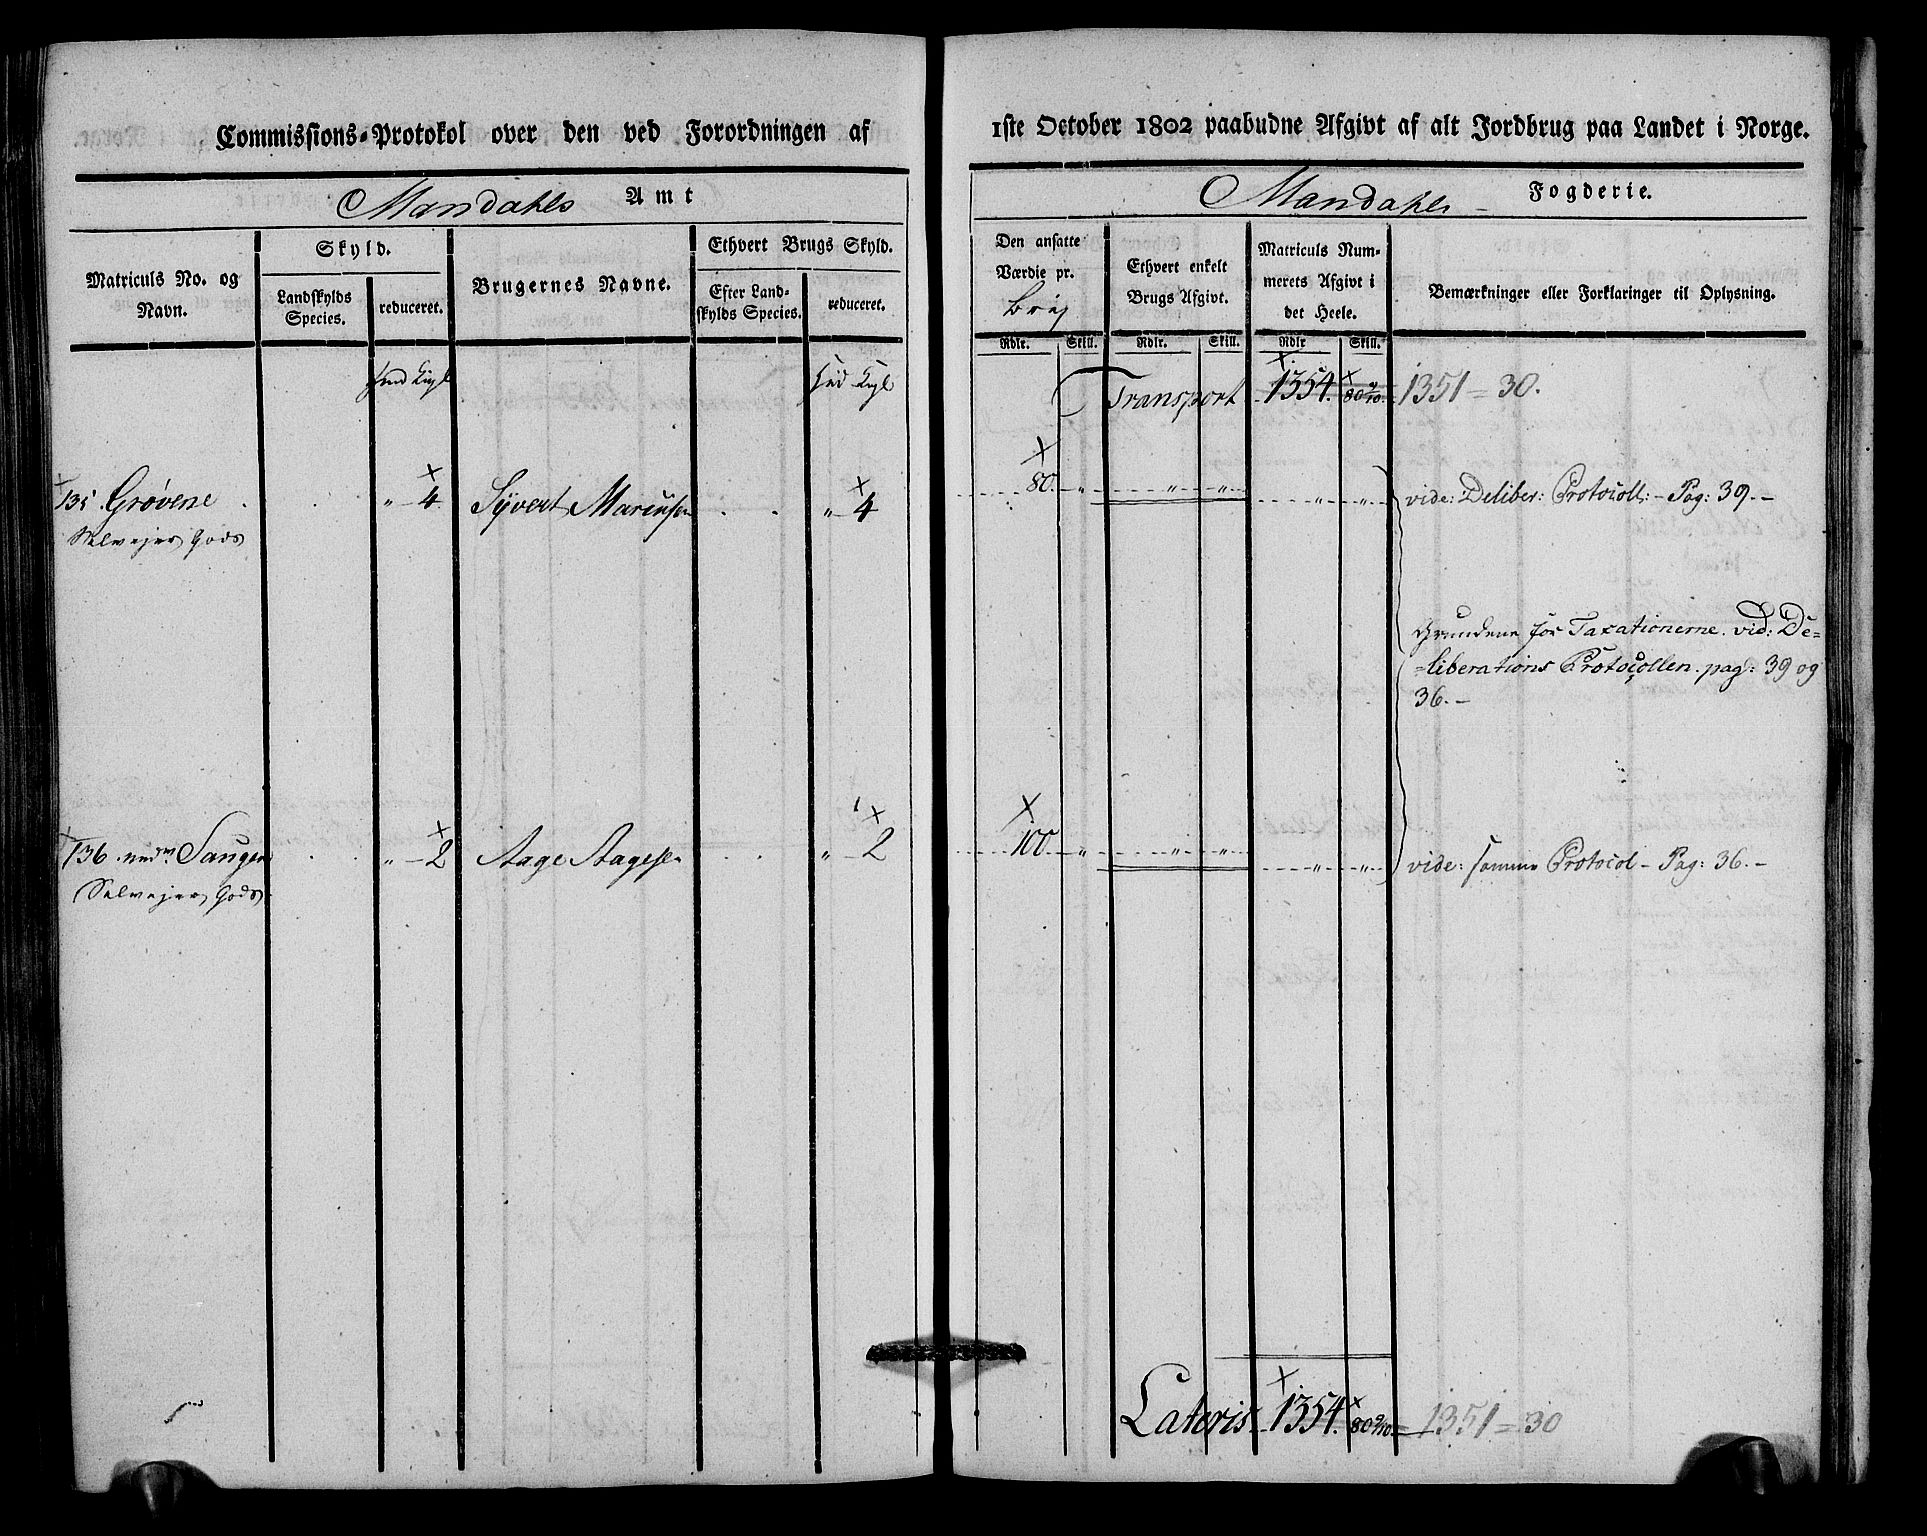 Commissions-Protokol over den ved Forordningen af
Mandahls Amt
Matriculs No. og Navn.
Skyld.
Landskylds Species.
reduceret.
Brugernes Navne.
Ethvert Brugs Skyld.
Efter Landskylds Species.
reduceret.
135 Grøvene . . . " 4 Syvert . . " 4
Selvejer Gods
136 Saugen . . " 2 Aage Aagesen . . " 2
Selvejer Gods
1ste October 1802 paabudne Afgivt af alt Jordbrug paa Landet i Norge.
Mandahls Fogderie.
Den ansatte Værdie pr.
Ethvert enkelt Brugs Afgivt.
Matriculs Nummerets Afgivt i det Heele.
Bemærkninger eller Forklaringer til Oplysning.
Rdlr. Skill. Rdlr. Skill. Rdlr Skill.
Transport 1354. 80 9/10. 1351 = 30.
80 " " " " " vide: Deliber: Protocoll: - Pag: 39. -
Grundene for Taxationerne. vid: De=
=liberations Protocollen. pag: 39 og
36. -
100 " " " " " vide: samme Protocol - Pag: 36. -
Lateris 1354. 80 9/10. = 1351 = 30